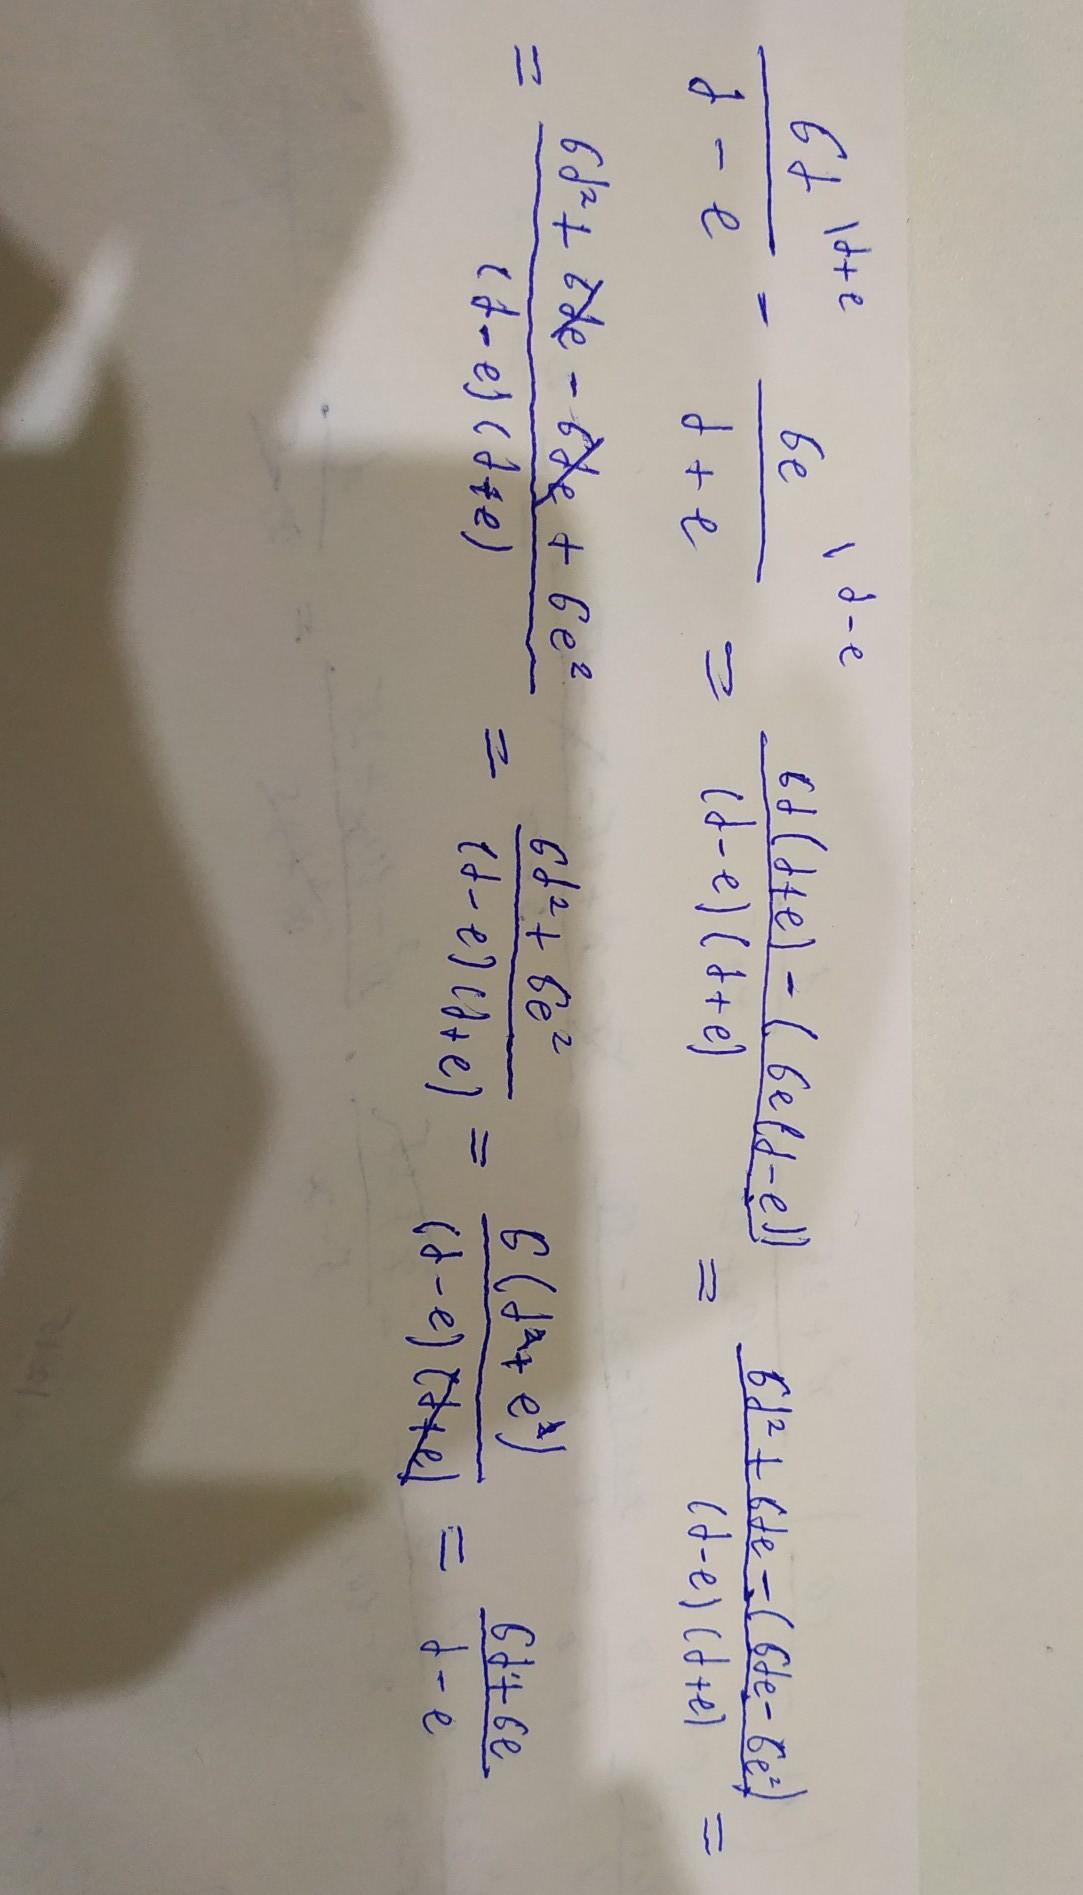 6d \d+e / d - e - 6e \d-e / d + e = 6d(d+e) - (6e(d-e)) / (d-e)(d+e) = 6d² + 6de - (6de - 6e²) / (d-e)(d+e) =
= 6d² + 6de - 6de + 6e² / (d-e)(d+e) = 6d² + 6e² / (d-e)(d+e) = 6(d² + e²) / (d-e)(d+e) = 6d + 6e / d - e